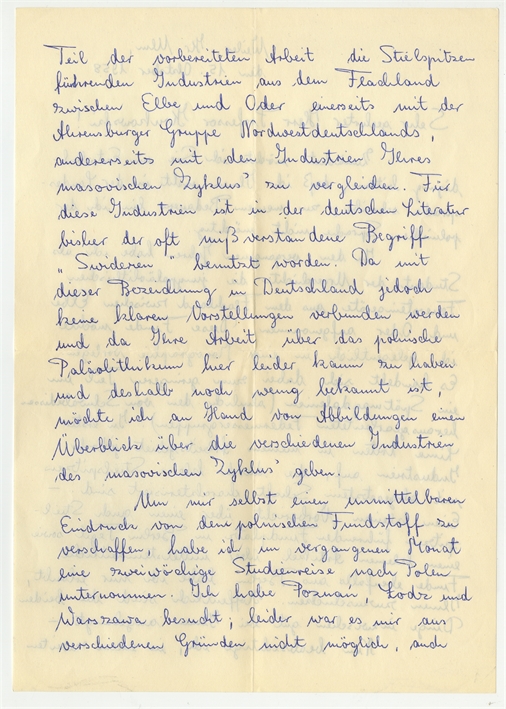 Teil der vorbereiteten Arbeit die Stielspitzen
führenden Industrien aus dem Flachland
zwischen Elbe und Oder einerseits mit der
Ahrensburger Gruppe Nordwestdeutschlands,
andererseits mit den Industrien Ihres
masovischen Zyklus' zu vergleichen. Für
diese Industrien ist in der deutschen Literatur
bisher der oft mißverstandene Begriff
„Swiderien" benutzt worden. Da mit
dieser Bezeichnung in Deutschland jedoch
keine klaren Vorstellungen verbunden werden
und da Ihre Arbeit über das polnische
Paläolithikum hier leider kaum zu haben
und deshalb noch wenig bekannt ist,
möchte ich an Hand von Abbildungen einen
Überblick über die verschiedenen Industrien
des masovischen Zyklus' geben.
Um mir selbst einen unmittelbaren
Eindruck von dem polnischen Fundstoff zu
verschaffen, habe ich im vergangenen Monat
eine zweiwöchige Studienreise nach Polen
unternommen. Ich habe Poznan, Lodz und
Warszawa besucht; leider war es mir aus
verschiedenen Gründen nicht möglich, auch